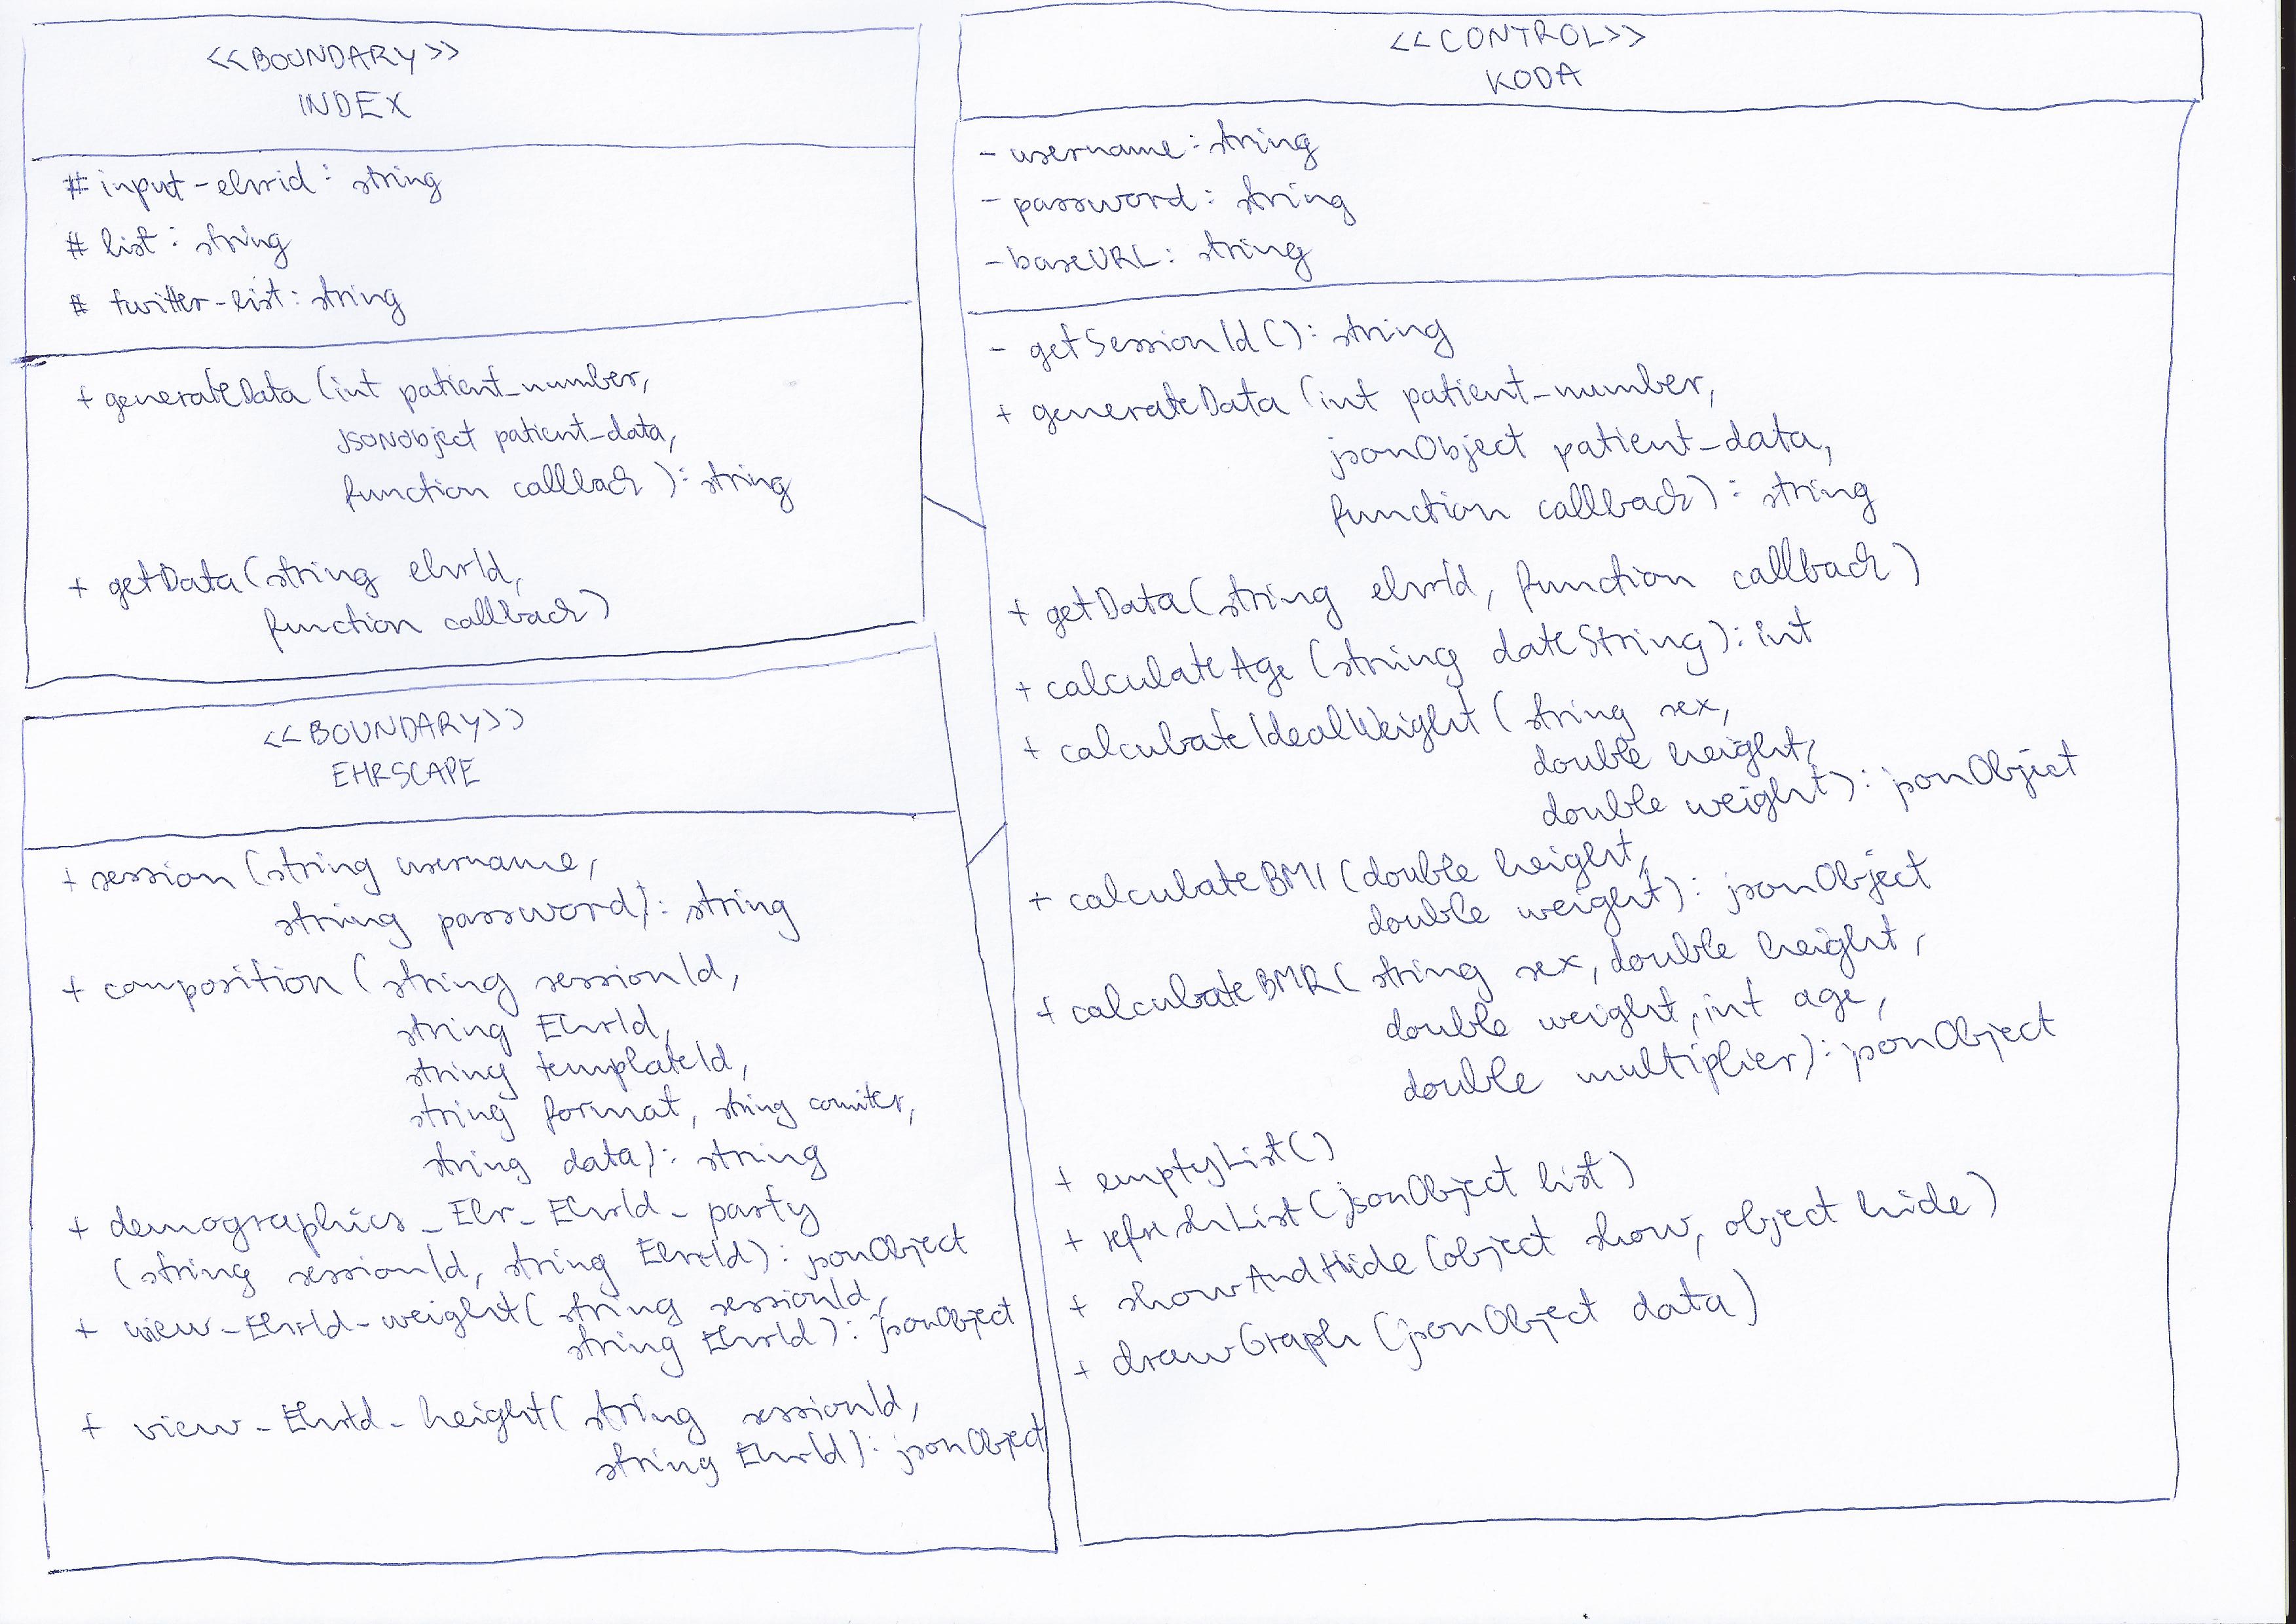 <<BOUNDARY>>
INDEX
# input-ehrid: string
# list: string
# twitter-list: string
+ generateData (int patient_number,
JSONObject patient_data,
function callback): string
+ getData (string ehrId,
function callback)
<<BOUNDARY>>
EHRSCAPE
+ session (string username,
string password): string
+ composition (string sessionId,
string EhrId,
string templateId,
string format, string comiter,
string data): string
+ demographics_Ehr_EhrId_party
(string sessionId, string EhrId): jsonObject
+ view_EhrId_weight( string sessionId,
string EhrId): jsonObject
+ view_EhrId_height( string sessionId,
string EhrId): jsonObject
<<CONTROL>>
KODA
- username: string
- password: string
- baseURL: string
- getSessionId(): string
+ generateData (int patient_number,
jsonObject patient_data,
function callback): string
+ getData(string ehrId, function callback)
+ calculateAge (string dateString): int
+ calculateIdealWeight ( string sex,
double height,
double weight): jsonObject
+ calculateBMI (double height,
double weight): jsonObject
+ calculateBMR( string sex, double height,
double weight, int age,
double multiplier): jsonObject
+ emptyList()
+ refreshList(jsonObject list)
+ showAndHide (object show, object hide)
+ drawGraph (jsonObject data)